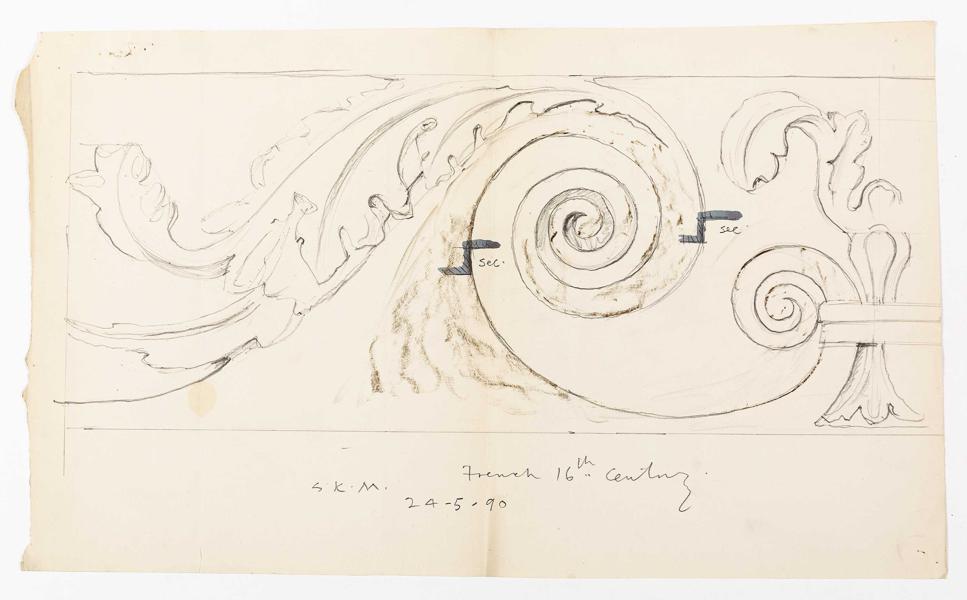 sec.
sec.
French 16th century.
S.K.M.
24-5-90